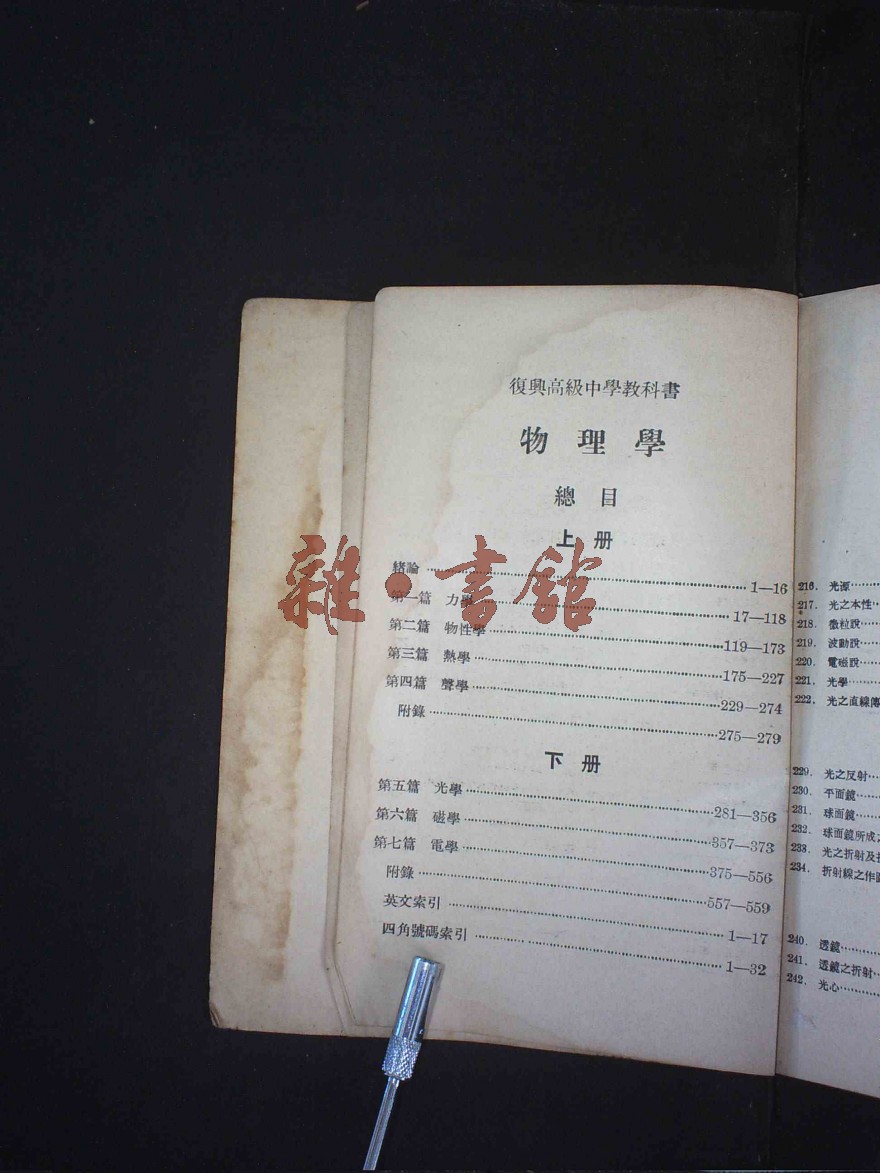 復興高級中學教科書
物理學
總目
上册
緒論 1—16
第一篇 力學 17—118
第二篇 物性學 119—173
第三篇 熱學 175—227
第四篇 聲學 229—274
附錄 275—279
下册
第五篇 光學 281—356
第六篇 磁學 357—373
第七篇 電學 375—556
附錄 557—559
英文索引 1—17
四角號碼索引 1—32
雜·書館
216. 光源
217. 光之本性
218. 微粒說
219. 波動說
220. 電磁說
221. 光學
222. 光之直線傳
229. 光之反射
230. 平面鏡
231. 球面鏡
232. 球面鏡所成
233. 光之折射及
234. 折射線之作
240. 透鏡
241. 透鏡之折射
242. 光心